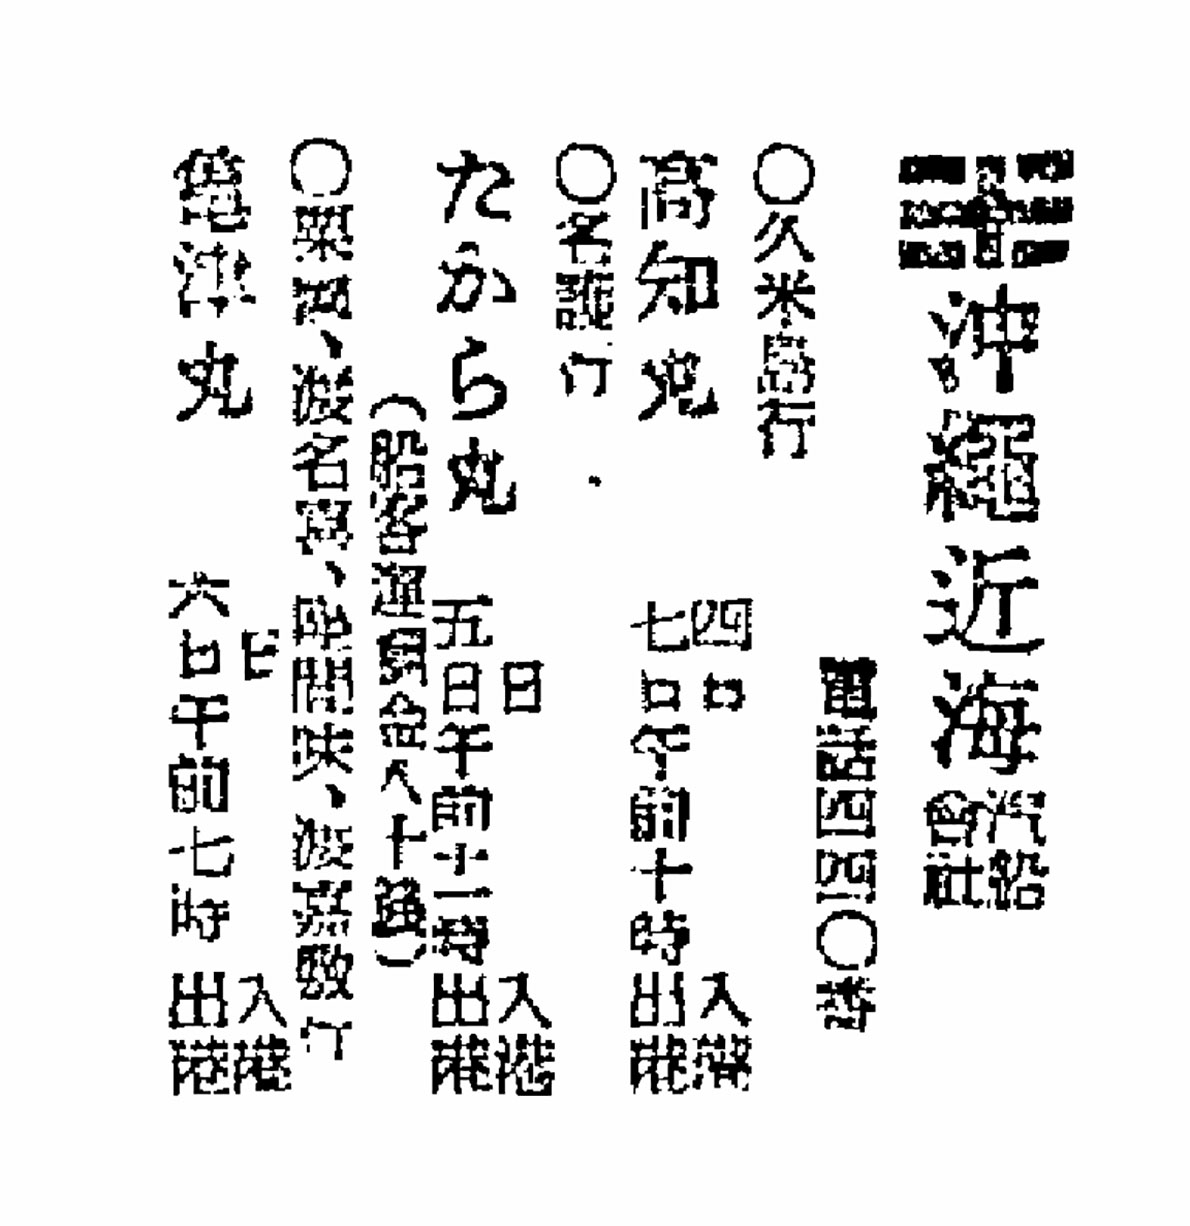 沖縄近海汽船會社
電話四四〇番
〇久米島行
高知丸
四日入港
七日午前十時出港
〇名護行
たから丸
日入港
五日午前十一時出港
(船客運賃金八十銭)
〇粟国、渡名喜、座間味、渡嘉敷行
亀津丸
日入港
六日午前七時出港